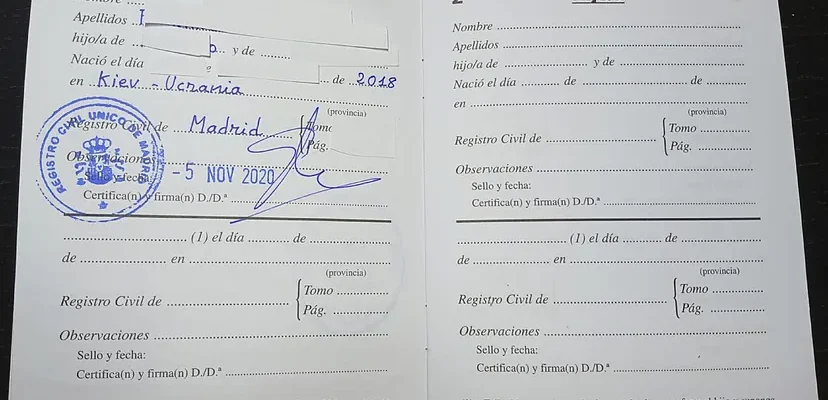 Apellidos
hijo/a de ... y de ........
Nació el día ... de ..2018
en ..Kiev - Ucrania
(provincia)
Registro Civil de ...Madrid.. Tomo
Pág.
Observaciones
REGISTRO CIVIL UNICO DE MADRID
Sello y fecha: - 5 NOV 2020
Certifica(n) y firma(n) D./D.ª
(1) el día ............ de
de ............ en
(provincia)
Registro Civil de Tomo
Pág.
Observaciones
Sello y fecha:
Certifica(n) y firma(n) D./D.ª
Nombre
Apellidos
hijo/a de y de
Nació el día de de
en
(provincia)
Registro Civil de Tomo
Pág.
Observaciones
Sello y fecha:
Certifica(n) y firma(n) D./D.ª
(1) el día ............ de
de ............ en
(provincia)
Registro Civil de Tomo
Pág.
Observaciones
Sello y fecha:
Certifica(n) y firma(n) D./D.ª